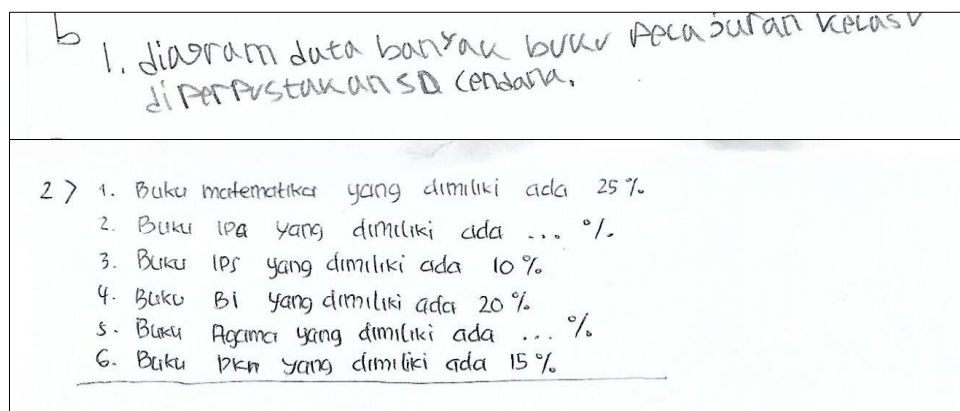 b
1. diagram data banyak buku Pecajuran kelas V
diperpustakan SD Cendana.
2) 1. Buku matematika yang dimiliki ada 25 %.
2. Buku IPA yang dimiliki ada ... %.
3. Buku IPS yang dimiliki ada 10 %
4. Buku Bi yang dimiliki ada 20 %
5. Buku Agama yang dimiliki ada ... %
6. Buku Pkn yang dimiliki ada 15 %